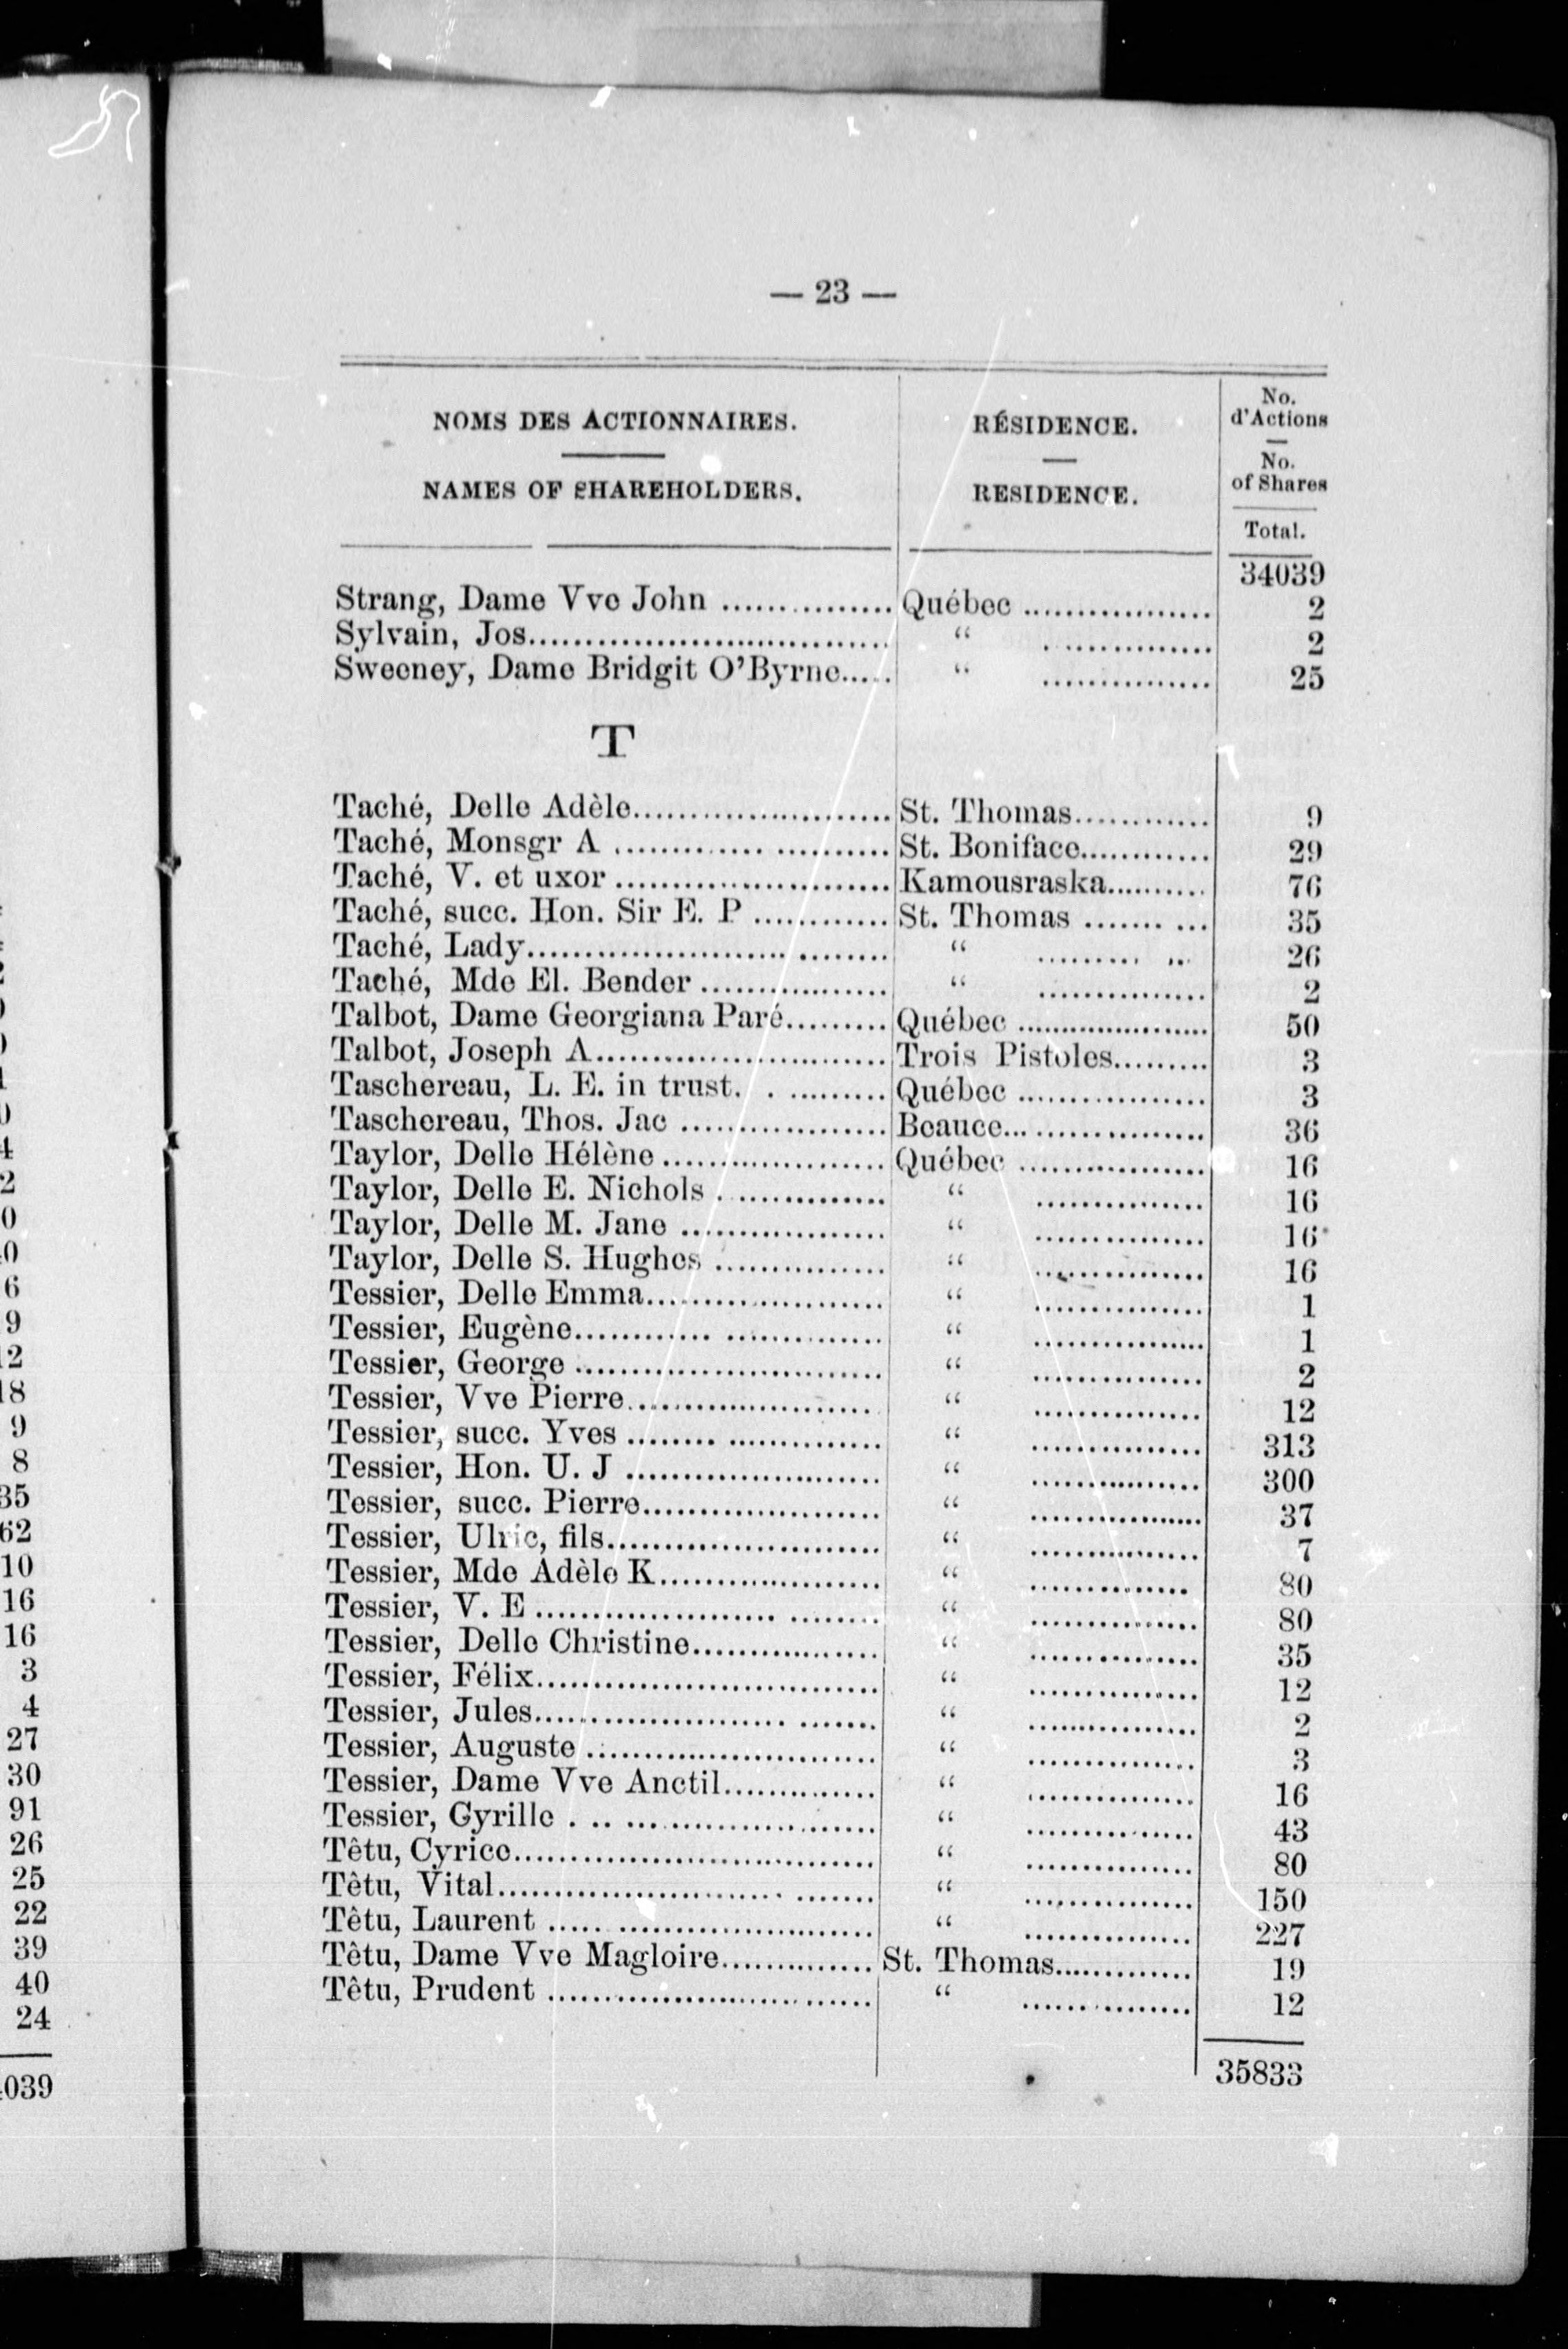 — 23 —
NOMS DES ACTIONNAIRES.
NAMES OF SHAREHOLDERS.
RÉSIDENCE.
RESIDENCE.
No.
d'Actions
No.
of Shares
Total.
34039
Strang, Dame Vve John ............... Québec ................. 2
Sylvain, Jos................................ “ ............... 2
Sweeney, Dame Bridgit O'Byrne..... “ ............... 25
T
Taché, Delle Adèle....................... St. Thomas............ 9
Taché, Monsgr A ....................... St. Boniface............ 29
Taché, V. et uxor ........................ Kamousraska.......... 76
Taché, succ. Hon. Sir E. P ............ St. Thomas .......... 35
Taché, Lady................................ “ ............ 26
Taché, Mde El. Bender ................. “ ............... 2
Talbot, Dame Georgiana Paré......... Québec ..................... 50
Talbot, Joseph A.......................... Trois Pistoles......... 3
Taschereau, L. E. in trust. . ......... Québec ................. 3
Taschereau, Thos. Jac .................. Beauce.................. 36
Taylor, Delle Hélène .................... Québec ................. 16
Taylor, Delle E. Nichols ............... “ ............... 16
Taylor, Delle M. Jane .................. “ ............... 16
Taylor, Delle S. Hughes ............... “ ............... 16
Tessier, Delle Emma..................... “ ............... 1
Tessier, Eugène.......................... “ ............... 1
Tessier, George ........................... “ ............... 2
Tessier, Vve Pierre...................... “ ............... 12
Tessier, succ. Yves ...................... “ ............... 313
Tessier, Hon. U. J ....................... “ ............... 300
Tessier, succ. Pierre..................... “ ................. 37
Tessier, Ulric, fils........................ “ ............... 7
Tessier, Mde Adèle K.................... “ .............. 80
Tessier, V. E .............................. “ ............... 80
Tessier, Delle Christine................. “ ............... 35
Tessier, Félix.............................. “ ............... 12
Tessier, Jules.............................. “ ............... 2
Tessier, Auguste .......................... “ ............... 3
Tessier, Dame Vve Anctil.............. “ ............... 16
Tessier, Cyrille . .. ...................... “ ............... 43
Têtu, Cyrice................................ “ ............... 80
Têtu, Vital................................ “ ............... 150
Têtu, Laurent ............................ “ ............... 227
Têtu, Dame Vve Magloire.............. St. Thomas............. 19
Têtu, Prudent ............................. “ ............... 12
35833
4
2
0
0
6
9
12
18
9
8
35
62
10
16
16
3
4
27
30
91
26
25
22
39
40
24
039